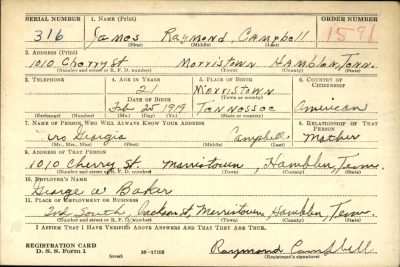 SERIAL NUMBER 1. NAME (Print) ORDER NUMBER
316 James Raymond Campbell 1591
(First) (Middle) (Last)
2. ADDRESS (Print)
1010 Cherry St Morristown Hamblen Tenn.
(Number and street or R. F. D. number) (Town) (County) (State)
3. TELEPHONE 4. AGE IN YEARS 5. PLACE OF BIRTH 6. COUNTRY OF CITIZENSHIP
21 Morristown
DATE OF BIRTH (Town or county)
Feb 25 1919 Tennessee American
(Exchange) (Number) (Mo.) (Day) (Yr.) (State or country)
7. NAME OF PERSON WHO WILL ALWAYS KNOW YOUR ADDRESS 8. RELATIONSHIP OF THAT PERSON
Mrs Georgia Campbell Mother
(Mr., Mrs., Miss) (First) (Middle) (Last)
9. ADDRESS OF THAT PERSON
1010 Cherry St. Morristown, Hamblen, Tenn.
(Number and street or R. F. D. number) (Town) (County) (State)
10. EMPLOYER'S NAME
George W Baker
11. PLACE OF EMPLOYMENT OR BUSINESS
South Jackson St, Morristown, Hamblen, Tenn.
(Number and street or R. F. D. number) (Town) (County) (State)
I AFFIRM THAT I HAVE VERIFIED ABOVE ANSWERS AND THAT THEY ARE TRUE.
REGISTRATION CARD
D. S. S. Form 1 16—17105 Raymond Campbell
(Registrant's signature)